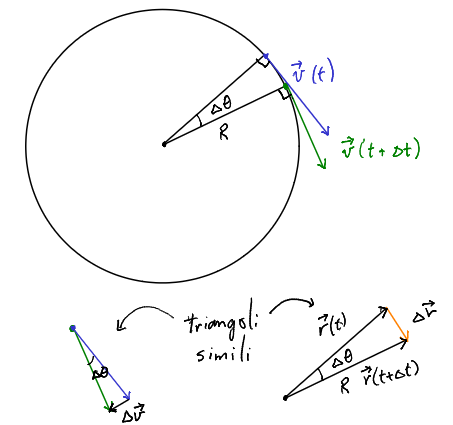 v⃗(t)
Δθ
R
v⃗(t+Δt)
triangoli
simili
r⃗(t)
Δr⃗
Δθ
Δθ
R r⃗(t+Δt)
Δv⃗